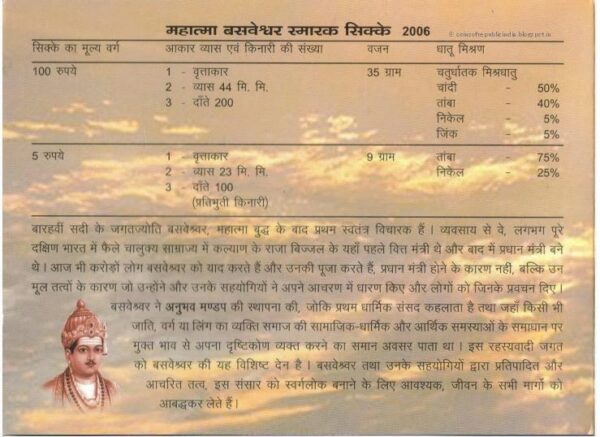 महात्मा बसवेश्वर स्मारक सिक्के 2006
© coinsofrepublicindia.blogspot.in
सिक्के का मूल्य वर्ग आकार व्यास एवं किनारी की संख्या वजन धातु मिश्रण
100 रुपये 1 - वृत्ताकार 35 ग्राम चतुर्धातक मिश्रधातु
2 - व्यास 44 मि. मि. चांदी - 50%
3 - दाँते 200 तांबा - 40%
निकेल - 5%
जिंक - 5%
5 रुपये 1 - वृत्ताकार 9 ग्राम तांबा - 75%
2 - व्यास 23 मि. मि. निकेल - 25%
3 - दाँते 100
(प्रतिभुती किनारी)
बारहवीं सदी के जगतज्योति बसवेश्वर, महात्मा बुद्ध के बाद प्रथम स्वतंत्र विचारक हैं । व्यवसाय से वे, लगभग पूरे
दक्षिण भारत में फैले चालुक्य साम्राज्य में कल्याण के राजा बिज्जल के यहाँ पहले वित्त मंत्री थे और बाद में प्रधान मंत्री बने
थे । आज भी करोड़ों लोग बसवेश्वर को याद करते हैं और उनकी पूजा करते हैं, प्रधान मंत्री होने के कारण नहीं, बल्कि उन
मूल तत्वों के कारण जो उन्होंने और उनके सहयोगियों ने अपने आचरण में धारण किए और लोगों को जिनके प्रवचन दिए ।
बसवेश्वर ने अनुभव मण्डप की स्थापना की, जोकि प्रथम धार्मिक संसद कहलाता है तथा जहाँ किसी भी
जाति, वर्ग या लिंग का व्यक्ति समाज की सामाजिक-धार्मिक और आर्थिक समस्याओं के समाधान पर
मुक्त भाव से अपना दृष्टिकोण व्यक्त करने का समान अवसर पाता था । इस रहस्यवादी जगत
को बसवेश्वर की यह विशिष्ट देन है । बसवेश्वर तथा उनके सहयोगियों द्वारा प्रतिपादित और
आचरित तत्व, इस संसार को स्वर्गलोक बनाने के लिए आवश्यक, जीवन के सभी मार्गो को
आबद्धकर लेते हैं ।